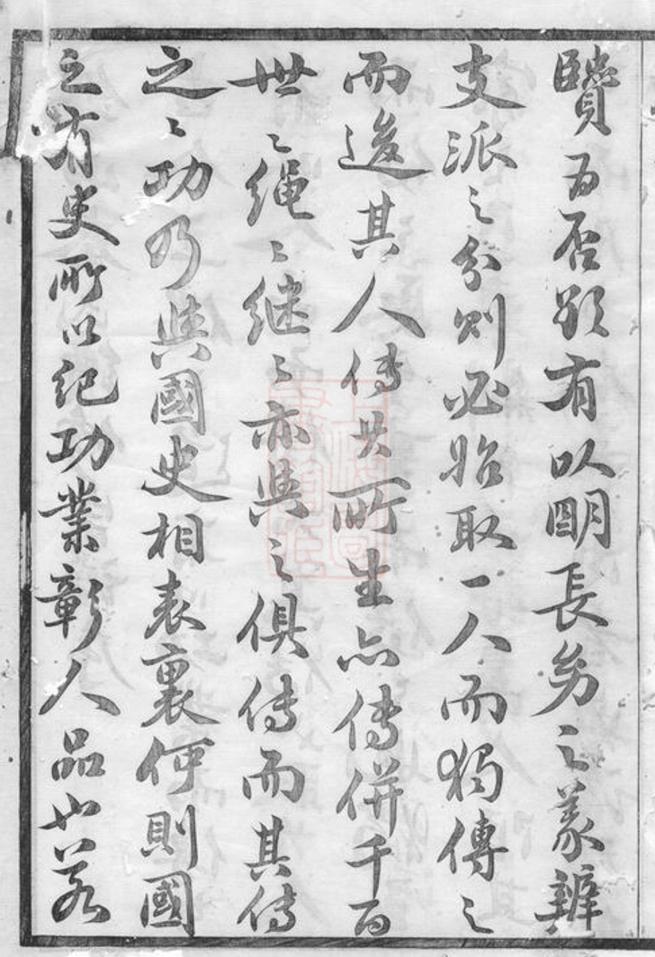 为否有以明長幼之義辨
支派之分则必始取一人而獨傳之
而其人傳其所生亦傳併千百
世〻繩〻継〻亦與之俱傳而其傳
之〻功乃與國史相表裏何則國
之有史所以紀功業彰人品也若